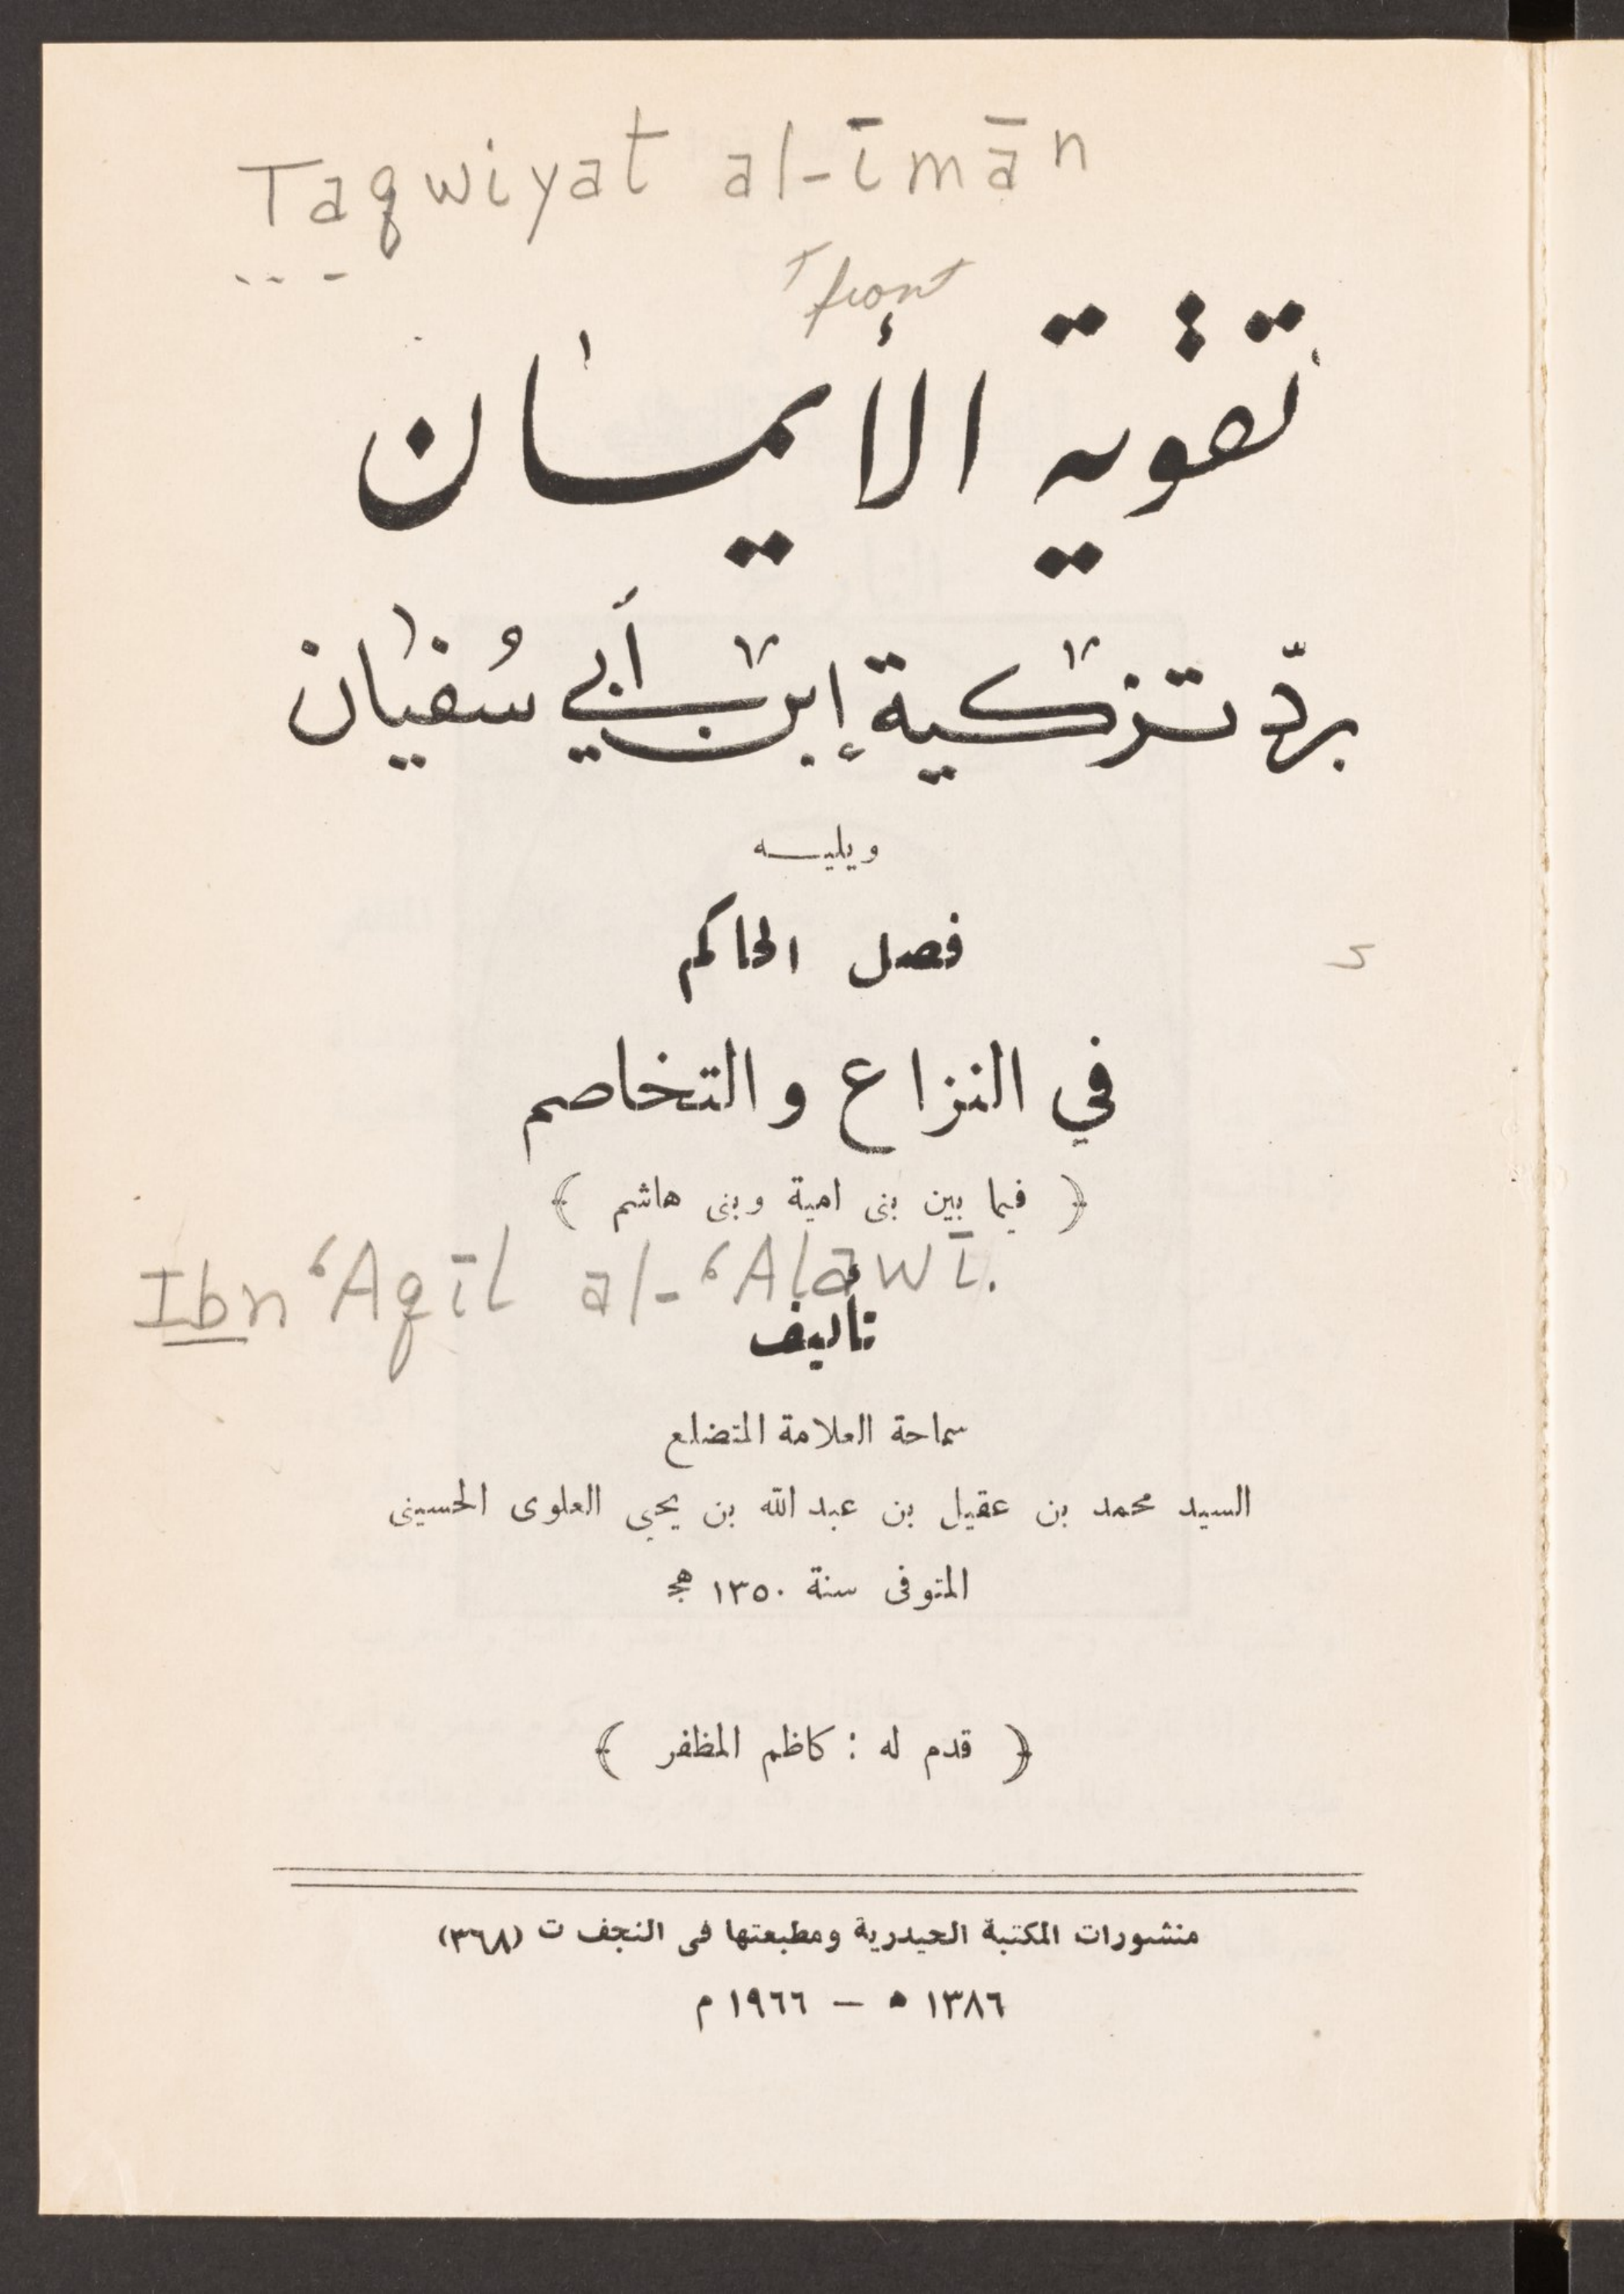 Taqwiyat al-īmān
front
تقوية الأيمان
بردّ تزكية إبن أبي سُفيان
ويليه
فصل الحاكم
في النزاع والتخاصم
﴿ فيما بين بنى امية وبنى هاشم ﴾
Ibn ʻAqīl al-ʻAlawī.
تأليف
سماحة العلامة المتضلع
السيد محمد بن عقيل بن عبد الله بن يحيى العلوى الحسينى
المتوفى سنة ١٣٥٠ هج
﴿ قدم له : كاظم المظفر ﴾
منشورات المكتبة الحيدرية ومطبعتها فى النجف ت (٣٦٨)
١٣٨٦ ه — ١٩٦٦ م